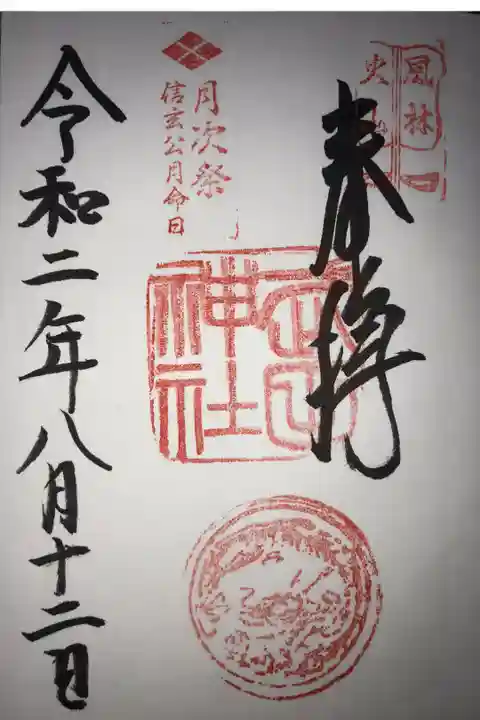 風林
火山
奉拝
武田
神社
月次祭
信玄公月命日
令和二年八月十二日